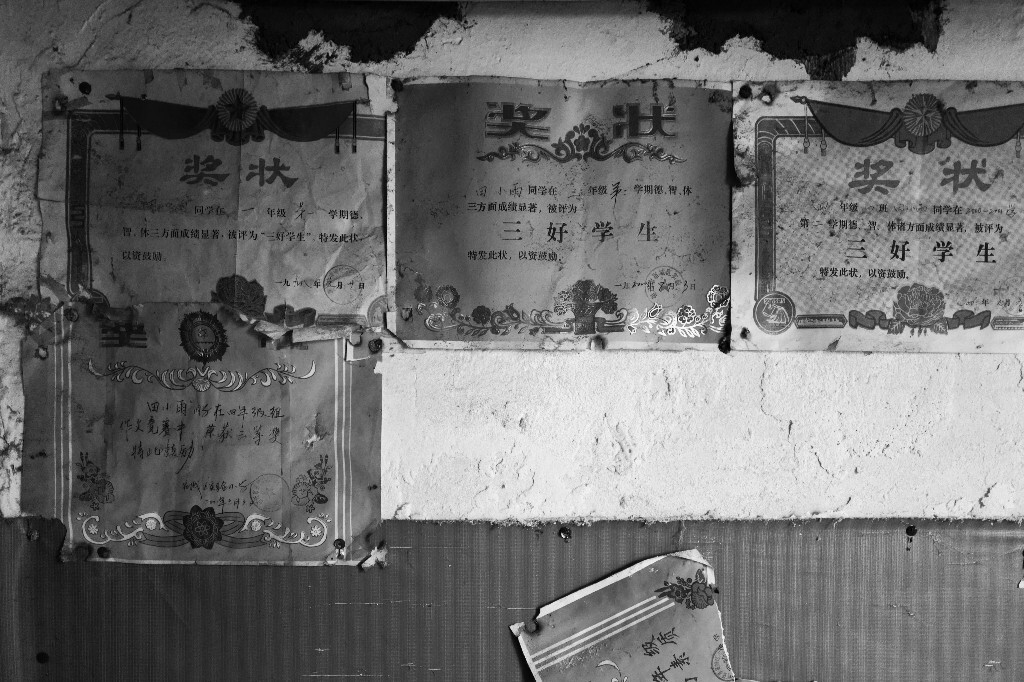 奖状
同学在 一 年级 第一 学期德、
智、体三方面成绩显著，被评为“三好学生”特发此状，
以资鼓励。
奖状
田小雨 同学在 三 年级 第一 学期德、智、体
三方面成绩显著，被评为
三好学生
特发此状，以资鼓励。
奖状
年级 班 同学在
第一学期德、智、体诸方面成绩显著，被评为
三好学生
特发此状，以资鼓励。
田小雨 同学在四年级组
作文竞赛中 荣获三等奖
特此鼓励
级质
年素